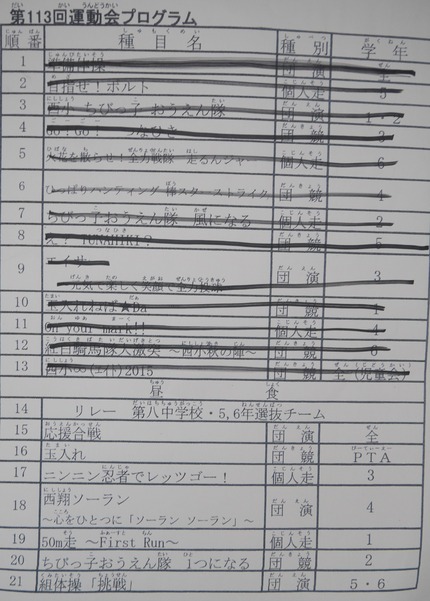 第113回運動会プログラム
順番 種目名 種別 学年
1 準備体操 団演 全
2 目指せ！ボルト 個人走 5
3 西小 ちびっ子 おうえん隊 団演 1・2
4 GO！GO！ つなひき 団競 3
5 火花を散らせ！全力戦隊 走るんジャー 個人走 6
6 ひっぱりハンティング 棒スターストライク 団競 4
7 ちびっ子おうえん隊 風になる 個人走 2
8 え？ TUNAHIKI？ 団競 5
9 エイサー 団演 3
～元気で楽しく笑顔で全力投球～
10 玉入れねば★Ba 団競 1
11 On your mark!! 個人走 4
12 紅白騎馬隊大激突 ～西小秋の陣～ 団競 6
13 西小∞(エイト)2015 団競 全（児童会）
昼食
14 リレー 第八中学校・5,6年選抜チーム
15 応援合戦 団演 全
16 玉入れ 団競 PTA
17 ニンニン忍者でレッツゴー！ 個人走 3
18 西翔ソーラン 団演 4
～心をひとつに「ソーラン ソーラン」～
19 50m走 ～First Run～ 個人走 1
20 ちびっこおうえん隊 1つになる 団競 2
21 組体操「挑戦」 団演 5・6